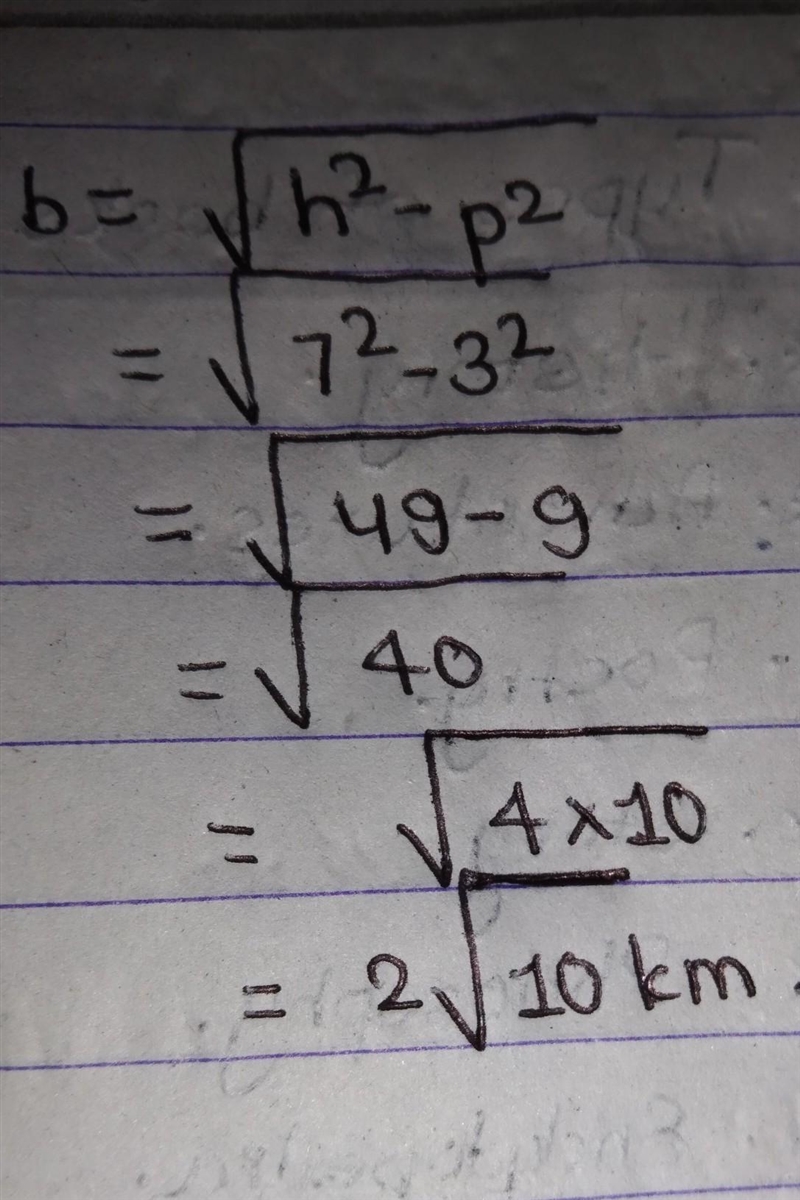 b = √h² - p²
= √7² - 3²
= √49 - 9
= √40
= √4 × 10
= 2√10 km.